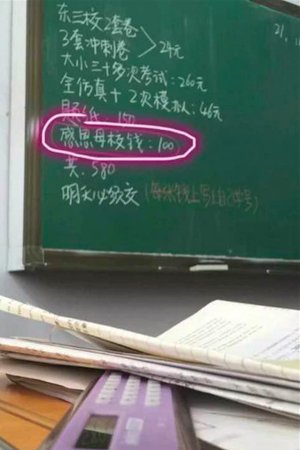 东三校2套卷
3套冲刺卷 > 24元
大小三十多次考试:260元
全仿真+2次模拟:46元
题纸:150
感恩母校钱:100
共:580
明天必须交(每张钱上写上自己学号)
21,